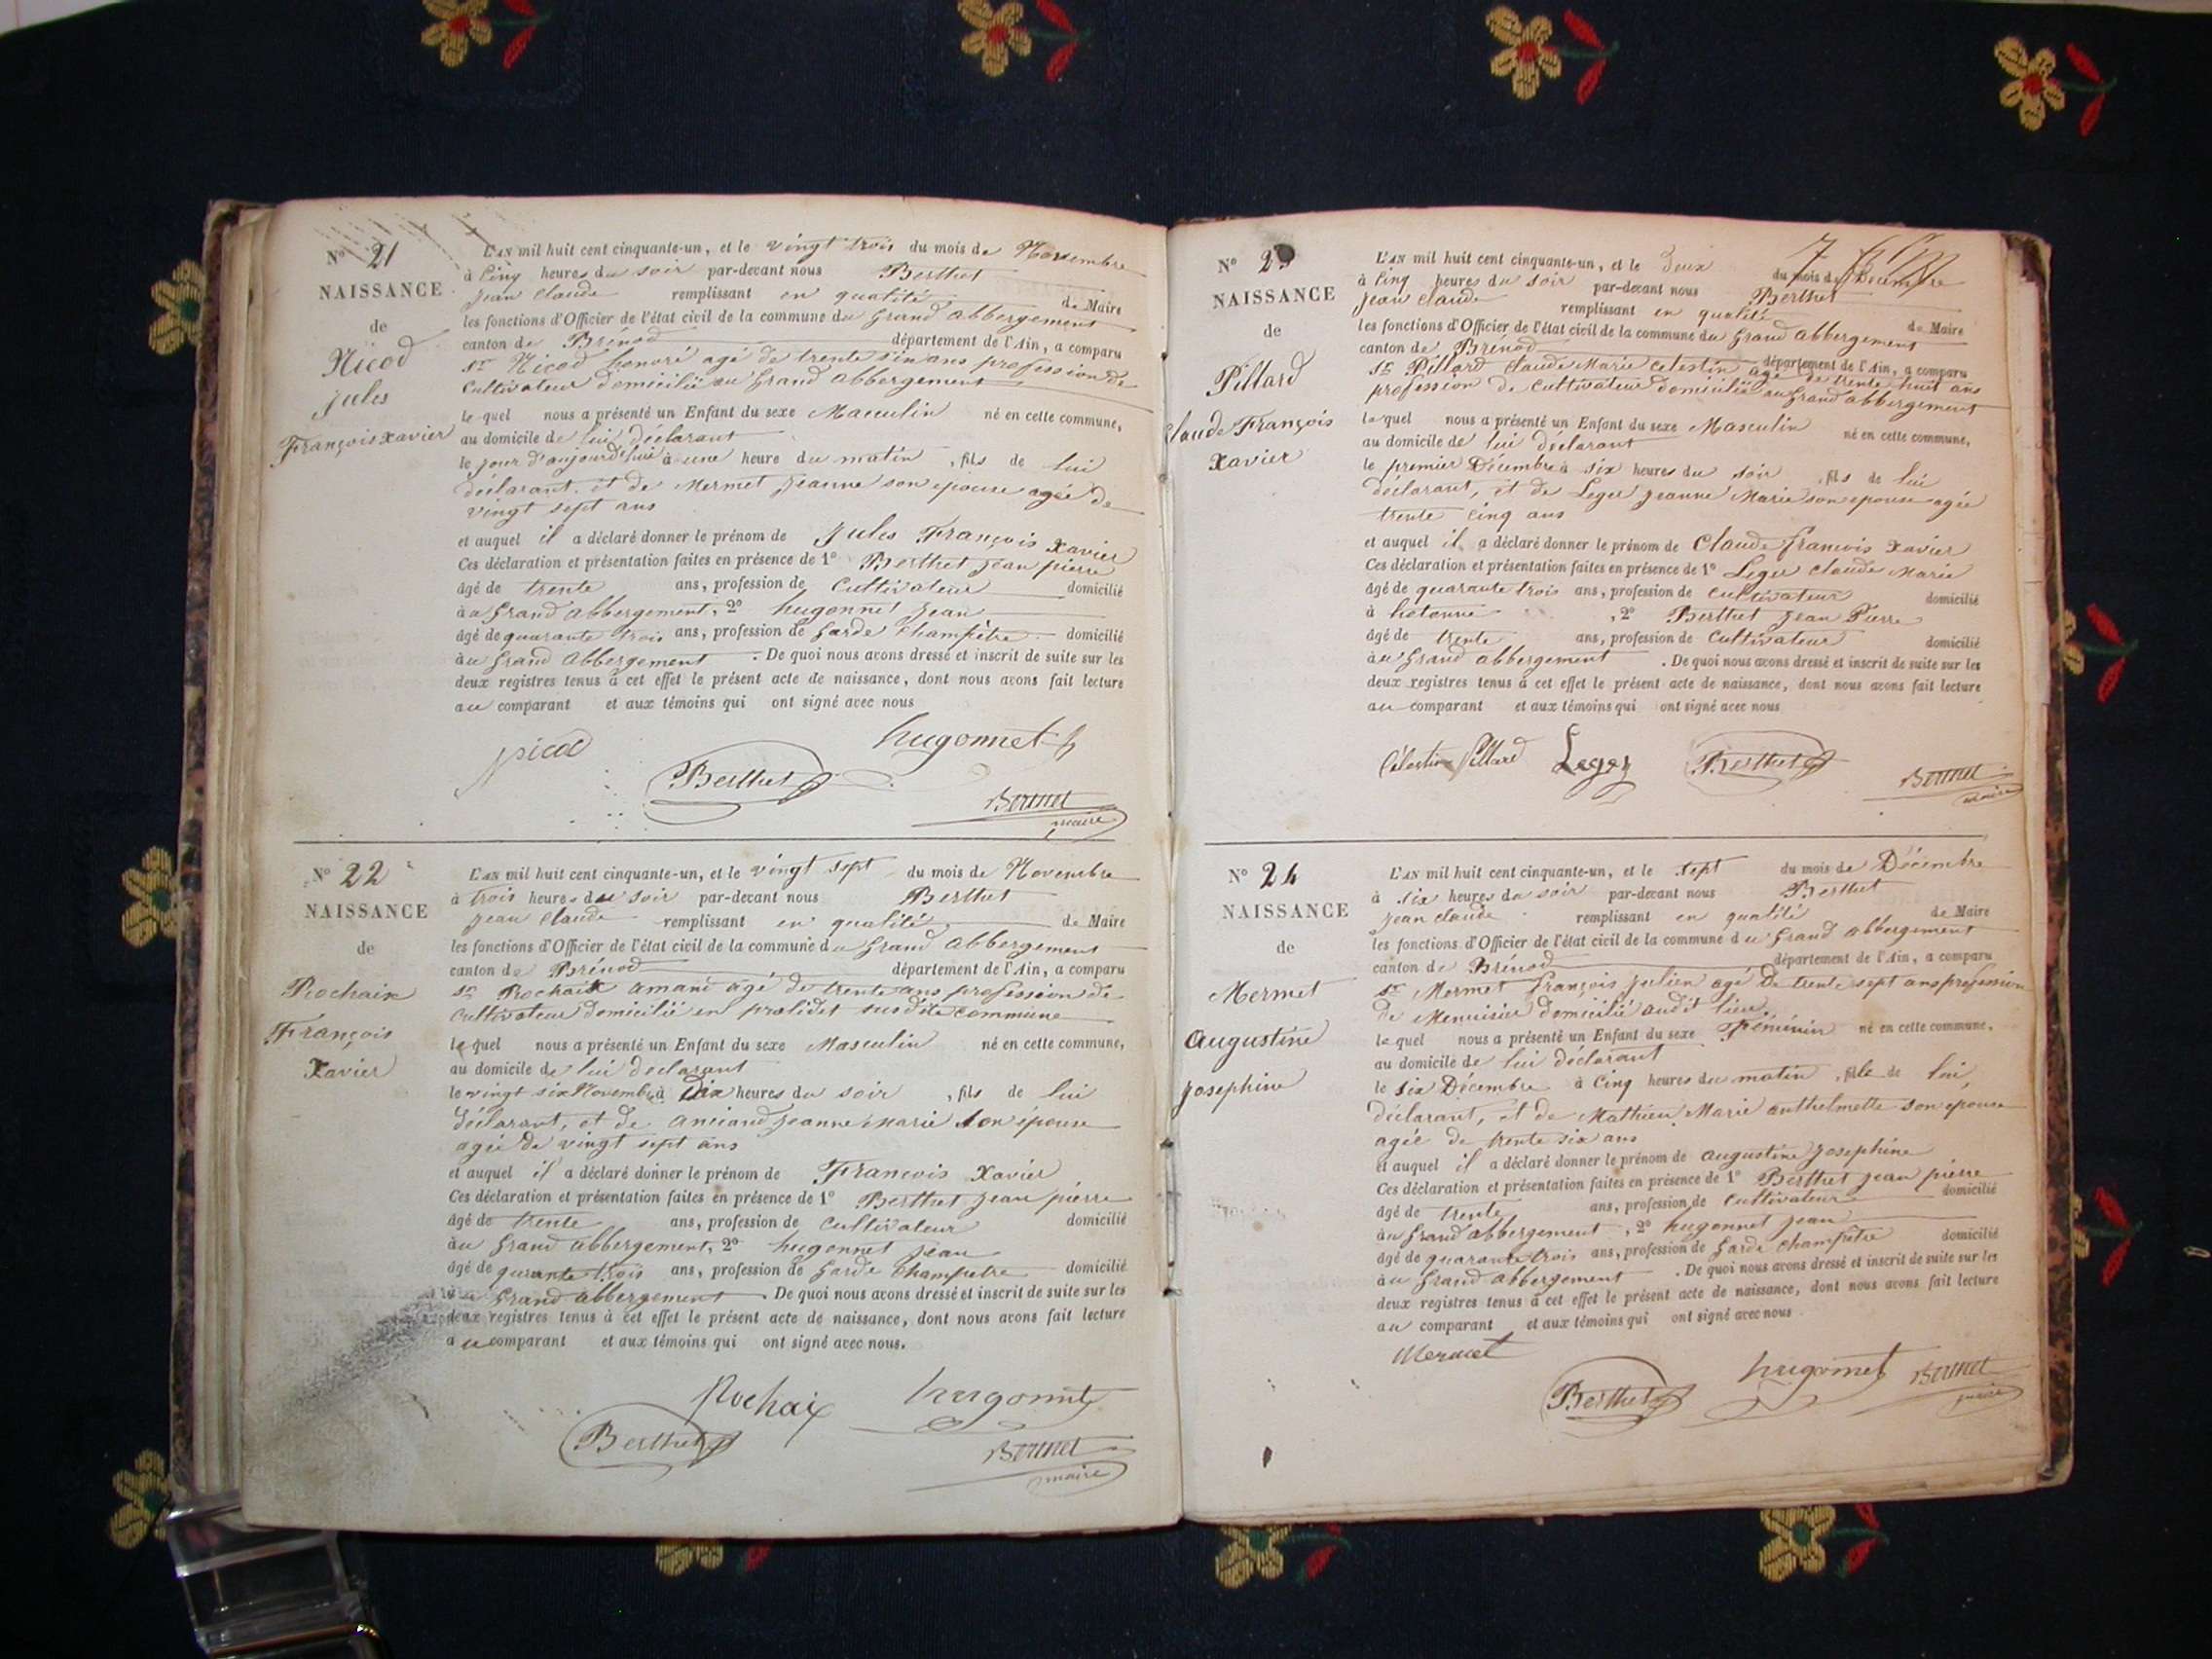 N° 21
NAISSANCE
de
Nicod
jules
François xavier
L'AN mil huit cent cinquante-un, et le vingt trois du mois de Novembre
à Cinq heures du soir par-devant nous Berthet
jean Claude remplissant en qualité de Maire
les fonctions d'Officier de l'état civil de la commune du Grand abbergement
canton de Brénod département de l'Ain, a comparu
sr Nicod honoré agé de trente six ans profession de
Cultivateur domicilié au Grand abbergement
le quel nous a présenté un Enfant du sexe Masculin né en cette commune,
au domicile de lui déclarant
le jour d'aujourd'hui à une heure du matin, fils de lui
déclarant, et de Mermet jeanne son epouse agée de
vingt sept ans
et auquel il a déclaré donner le prénom de jules François xavier
Ces déclaration et présentation faites en présence de 1° Berthet jean pierre
âgé de trente ans, profession de Cultivateur domicilié
à au Grand abbergement, 2° hugonnet jean
âgé de quarante trois ans, profession de Garde Champêtre domicilié
à au Grand abbergement. De quoi nous avons dressé et inscrit de suite sur les
deux registres tenus à cet effet le présent acte de naissance, dont nous avons fait lecture
au comparant et aux témoins qui ont signé avec nous
Nicod hugonnet
Berthet
Berthet
maire
N° 22
NAISSANCE
de
Rochaix
François
Xavier
L'AN mil huit cent cinquante-un, et le vingt sept du mois de Novembre
à trois heures du soir par-devant nous Berthet
jean Claude remplissant en qualité de Maire
les fonctions d'Officier de l'état civil de la commune du Grand abbergement
canton de Brénod département de l'Ain, a comparu
sr Rochaix amand agé de trente ans profession de
Cultivateur domicilié en susdite commune
le quel nous a présenté un Enfant du sexe Masculin né en cette commune,
au domicile de lui declarant
le vingt six Novembre à Dix heures du soir, fils de lui
déclarant, et de jeanne Marie son épouse
agée de vingt sept ans
et auquel il a déclaré donner le prénom de Francois Xavier
Ces déclaration et présentation faites en présence de 1° Berthet jean pierre
âgé de trente ans, profession de Cultivateur domicilié
à au Grand abbergement, 2° hugonnet jean
âgé de quarante trois ans, profession de Garde Champetre domicilié
au Grand abbergement. De quoi nous avons dressé et inscrit de suite sur les
deux registres tenus à cet effet le présent acte de naissance, dont nous avons fait lecture
au comparant et aux témoins qui ont signé avec nous.
Rochaix hugonnet
Berthet
Berthet
maire
N° 23
NAISSANCE
de
Pillard
Claude François
Xavier
L'AN mil huit cent cinquante-un, et le deux du mois de Décembre
à Cinq heures du soir par-devant nous Berthet
jean claude remplissant en qualité de Maire
les fonctions d'Officier de l'état civil de la commune du Grand abbergement
canton de Brénod département de l'Ain, a comparu
sr Pillard Claude Marie Celestin agé de trente huit ans
profession de Cultivateur domicilié au Grand abbergement
le quel nous a présenté un Enfant du sexe Masculin né en cette commune,
au domicile de lui déclarant
le premier Décembre à six heures du soir, fils de lui
déclarant, et de Leger jeanne Marie son epouse agée
trente Cinq ans
et auquel il a déclaré donner le prénom de Claude francois xavier
Ces déclaration et présentation faites en présence de 1° Leger Claude Marie
âgé de quarante trois ans, profession de Cultivateur domicilié
à hotonne, 2° Berthet Jean Pierre
âgé de trente ans, profession de Cultivateur domicilié
à au Grand abbergement. De quoi nous avons dressé et inscrit de suite sur les
deux registres tenus à cet effet le présent acte de naissance, dont nous avons fait lecture
au comparant et aux témoins qui ont signé avec nous
Célestin Pillard Leger Berthet Berthet
maire
N° 24
NAISSANCE
de
Mermet
augustine
josephine
L'AN mil huit cent cinquante-un, et le sept du mois de Décembre
à six heures du soir par-devant nous Berthet
jean claude remplissant en qualité de Maire
les fonctions d'Officier de l'état civil de la commune du Grand abbergement
canton de Brénod département de l'Ain, a comparu
sr Mermet françois julien agé de trente sept ans profession
de Menuisier domicilié audit lieu
le quel nous a présenté un Enfant du sexe Féminin né en cette commune,
au domicile de lui déclarant
le six Décembre à Cinq heures du matin, fille de lui
déclarant, et de Mathieu Marie anthelmette son epouse
agée de trente six ans
et auquel il a déclaré donner le prénom de augustine josephine
Ces déclaration et présentation faites en présence de 1° Berthet jean pierre
âgé de trente ans, profession de Cultivateur domicilié
à au Grand abbergement, 2° hugonnet jean
âgé de quarante trois ans, profession de Garde Champêtre domicilié
à au Grand abbergement. De quoi nous avons dressé et inscrit de suite sur les
deux registres tenus à cet effet le présent acte de naissance, dont nous avons fait lecture
au comparant et aux témoins qui ont signé avec nous.
Mermet
Berthet hugonnet Berthet
maire